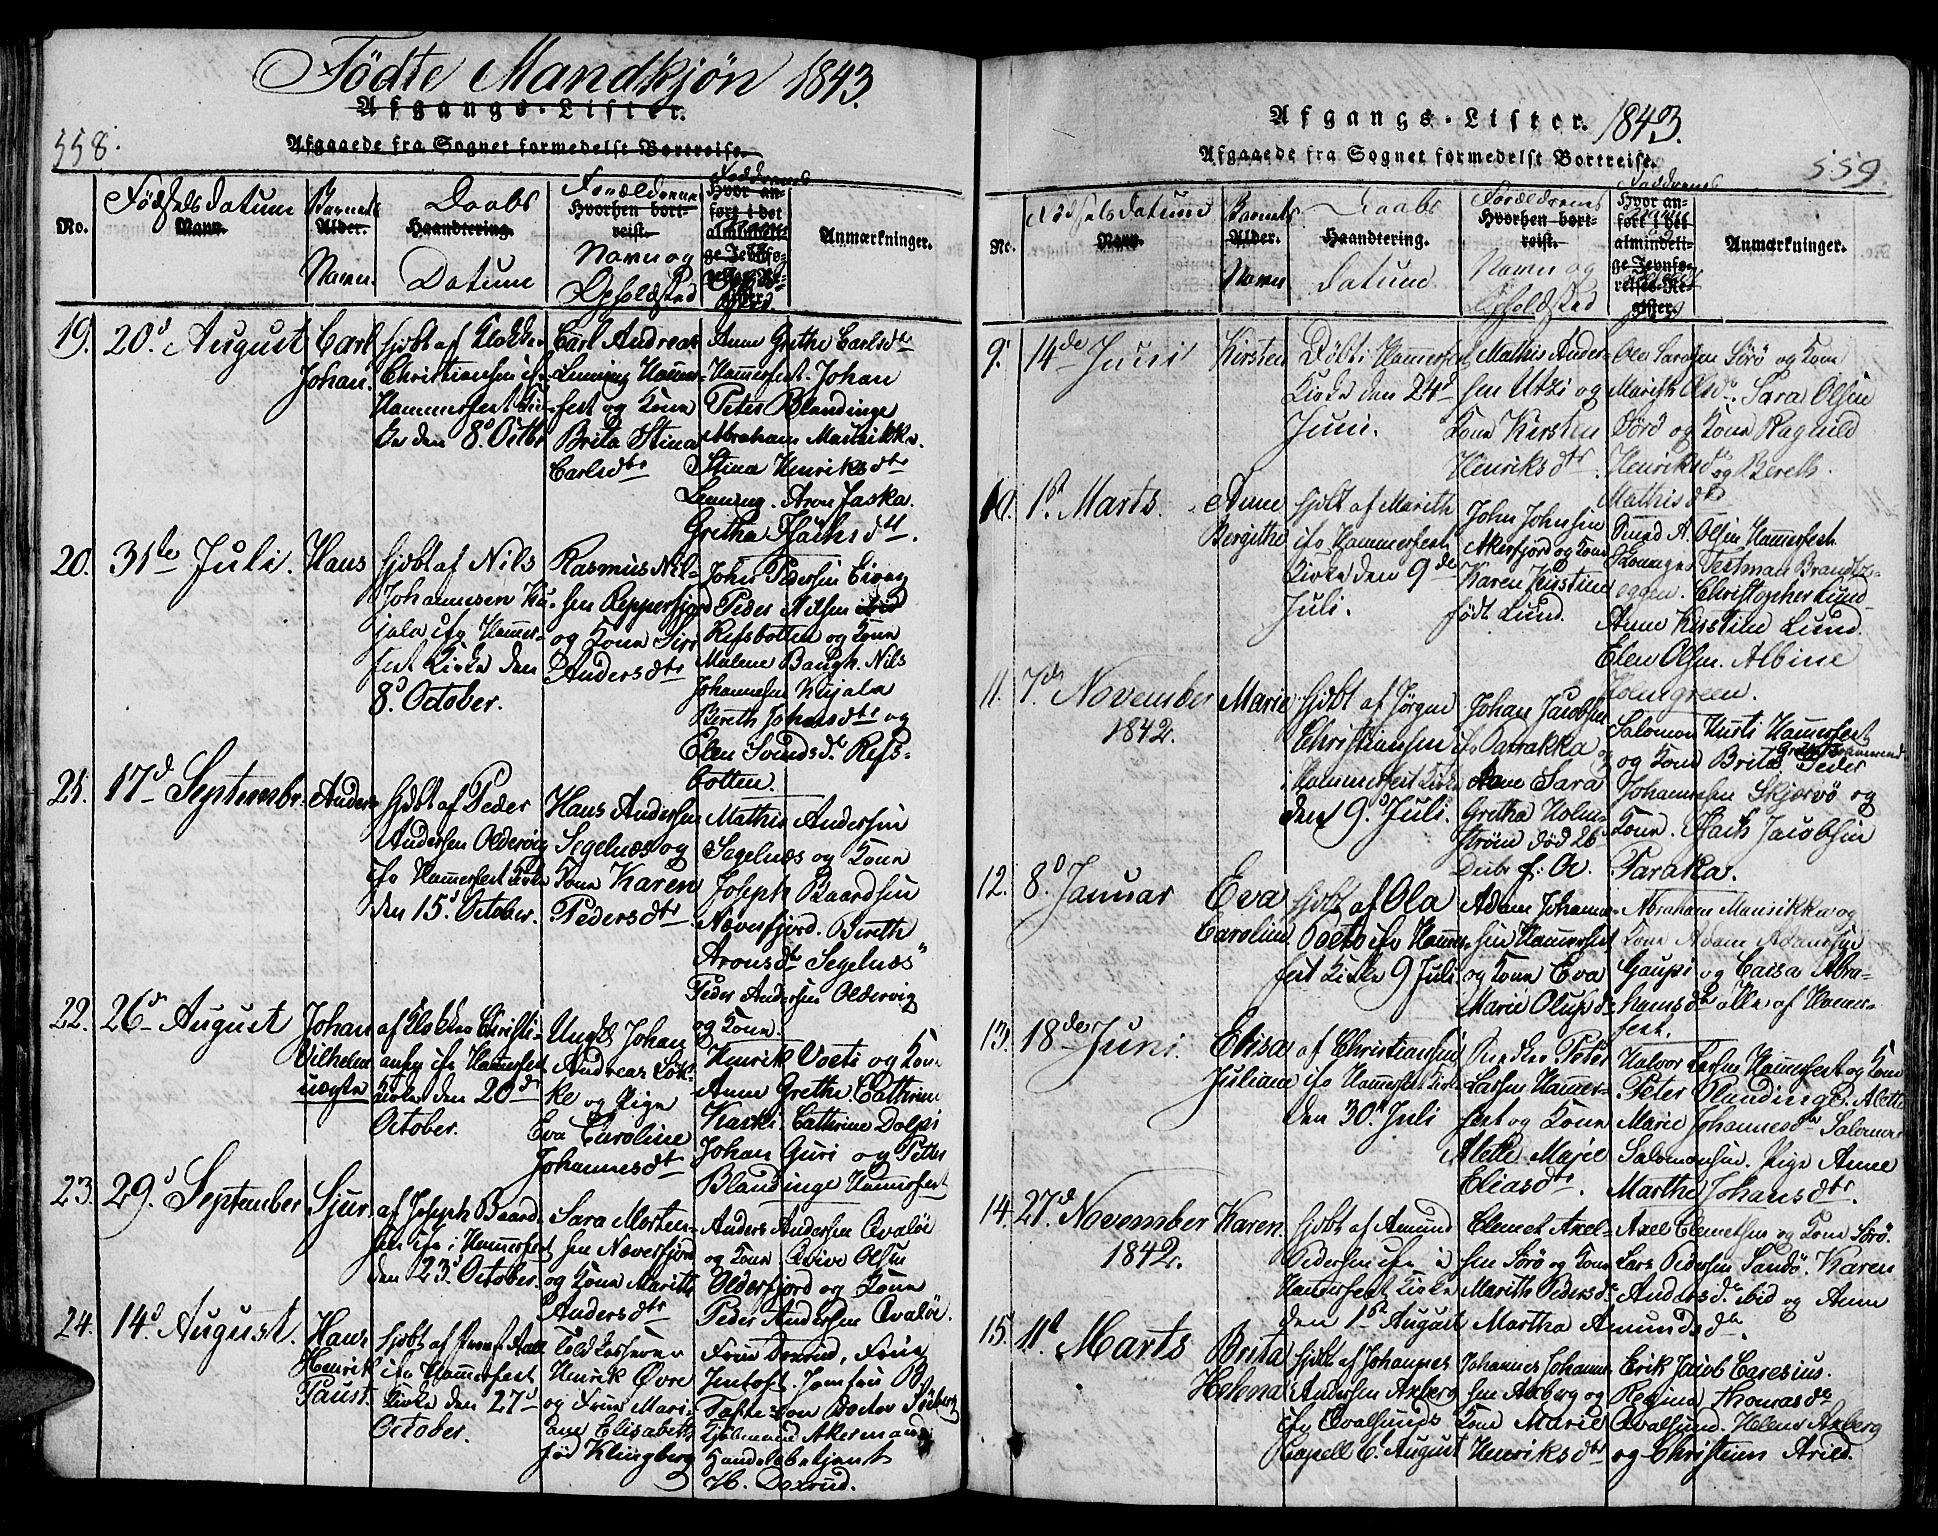 Födte Mandkjøn 1843.
Afgangs-Lister.
558.
Afgaaede fra Sognet formedelst Bortreise.
No.
Födselsdatum
Navn.
Barnets
Alder.
Navn
Daabs
Haandtering.
Datum
Forældrenes
Hvorhen bort-
reist.
Navn og
Opholdsted
Faddrenes
Hvor an-
ført i det
almindeli-
ge Jevnfø-
Anmærkninger.
19.
20d August
Carl
Johan.
hjdbt af Klokker
Christiansen ifr
Hammerfest Kir-
ke den 8d Octbr
Carl Andreas
Lenning Hammer-
fest og Kone
Brita Stina
Carlsdtr
Anne Grethe Carlsdtr
Hammerfest. Johan
Peter Blandinge
Abraham Mausikka.
Stina Henriksdtr
Lenning. Aron Jaska.
Gretha
20.
31te Juli.
Hans
hjdbt af Nils
Johannesen Ku-
jala ifg Hammer-
fest Kirke den
8d October.
Rasmus Nil-
sen Repperfjord
og Kone Siri
Andersdtr
John Pedersen
Peder Nilsen
Refsbotten og Kone
Malene Baugh. Nils
Johannesen Kujala
Bereth Johansdtr og
Elen Svendsdr Refs-
botten.
21.
17d Septembr.
Anders
hjdbt af Peder
Andersen Oldervig
ifr Hammerfest Kirke
den 15d October.
Hans Andersen
Segelnæs og
Kone Karen
Pedersdtr
Mathis Andersen
Sagelnæs og Kone
Joseph Baardsen
Næverfjord. Bereth
Aronsdtr Segelnæs
Peder Andersen Oldervig
og Kone.
22.
26d August
Johan
Vilhelm
uægte
af Klokker Christi-
ansen ifr Hammerfest
Kirke den 20de
October.
Ungk Johan
Andreas Lok-
ke og Pige
Eva Caroline
Johannesdtr
Henrik Voeti og Kone
Anne Grethe Cathrine
Kaski. Cathrine Dolpi
Johan Guri og Petter
Blandinge Hammerfest
23.
29d September
Sjur.
af Joseph Baard-
sen ifr i Hammerfest
den 23d October.
Sara Morten-
sen Næverfjord
og Kone Marith
Andersdtr
Anders Andersen Qvaløe
og Kone Olsen
Olderfjord og Kone
Peder Andersen Qvaløe.
24.
14d August.
Hans
Henrik
Faust.
hjdbt af Provst Aall
ifr Hammerfest
Kirke den 27d
October.
Toldkasserer
Henrik Øvre
og Frue Mari-
ane Elisabeth
fød Klingberg
Frue Doxrud, Frue
Jentoft. Jomfru B.
Tofte
Akermand
Handelsbetjent
H. Doxrud.
Afgangs-Lister. 1843.
Afgaaede fra Sognet formedelst Bortreise.
559
No.
Födselsdatum
Navn.
Barnets
Alder.
Navn
Daabs
Haandtering.
Datum
Forældrenes
Hvorhen bort-
reist.
Navn og
Opholdsted
Faddrenes
Hvor an-
ført i det
almindeli-
ge Jevnfø-
relses-Re-
gister.
Anmærkninger.
9.
14de Juni
Kirsten
Döbt i Hamerfest
Kirke den 24d
Juni.
Mathis Ander-
sen Utsi og
Kone Kirsten
Henriksdtr
Ole Larsen Sörö og Kone
Marith Olsdr. Sara Olsen
Sörö og Kone Ragnild
Henriksdr og Bereth
Mathisdtr
10.
1st Marts.
Anne
Bergithe
hjdbt af Marith
ifr Hammerfest
Kirke den 9de
Juli.
John Johnsen
Akerfjord og Kone
Karen Kirstine
födt Lund.
Smed A. Olsen Hammerfest.
Testman Brandtz-
eggen. Christopher Lund
Anne Kirstine Lund.
Elen Olsen. Albine
Holmgreen.
11.
7de November
1842.
Marie
hjdbt af Jörgen
Christiansen ifr
Hammerfest Kirke
den 9d Juli.
Johan Jacobsen
Parakka og
Kone Sara
Gretha Holm-
ström död 26
Salomon Kurti Hammerfest
og Kone Brita Peder
Johannesen Skjervö og
Kone. Isach Jacobsen
Paraka.
12.
8d Januar
Eva
Caroline
hjdbt af Ola
Voeto ifr Hammer-
fest Kirke 9 Juli
Adam Johanne-
sen Hammerfest
og Kone Eva
Marie Olupdr
Abraham Mausikka og
Kone Adam Adamsen
Gaupi og Caisa Abra-
hamsdtr alle af Hammer-
fest.
13.
18de Juni.
Elisa
Juliane
af Christiansen
ifr Hammerfest Kirke
den 30d Juli
Snedker Peter
Larsen Hammer-
fest og Kone
Alette Marie
Eliasdtr.
Halvor Larsen Hammerfest og Kone
Peter Blandinge. Alette
Marie Johannesdtr Salomon
Salomonsen. Pige Anne
Marthe Johansdtr.
14.
27d November
1842.
Karen.
hjdbt af Amund
Pedersen ifr i
Hamerfest Kirke
den 1st August
Clemet Axel-
sen Sörö og Kone
Marith Pedersdr
Axel Clemetsen og Kone Sörö.
Lars Pedersen Sandö. Karen
Andersdr ibid og Anne
Martha Amundsdr.
15.
11d Marts
Brita
Helena
hjdbt af Johannes
Andersen Axberg
ifr Qvalsunds
Capell 6. August
Johannes Johanne-
sen Axberg og
Kone Marie
Henriksdtr
Erik Jacob Caresius.
Regina Thomasdr
Qvalsund. Helena Axberg
og Christian Arild.